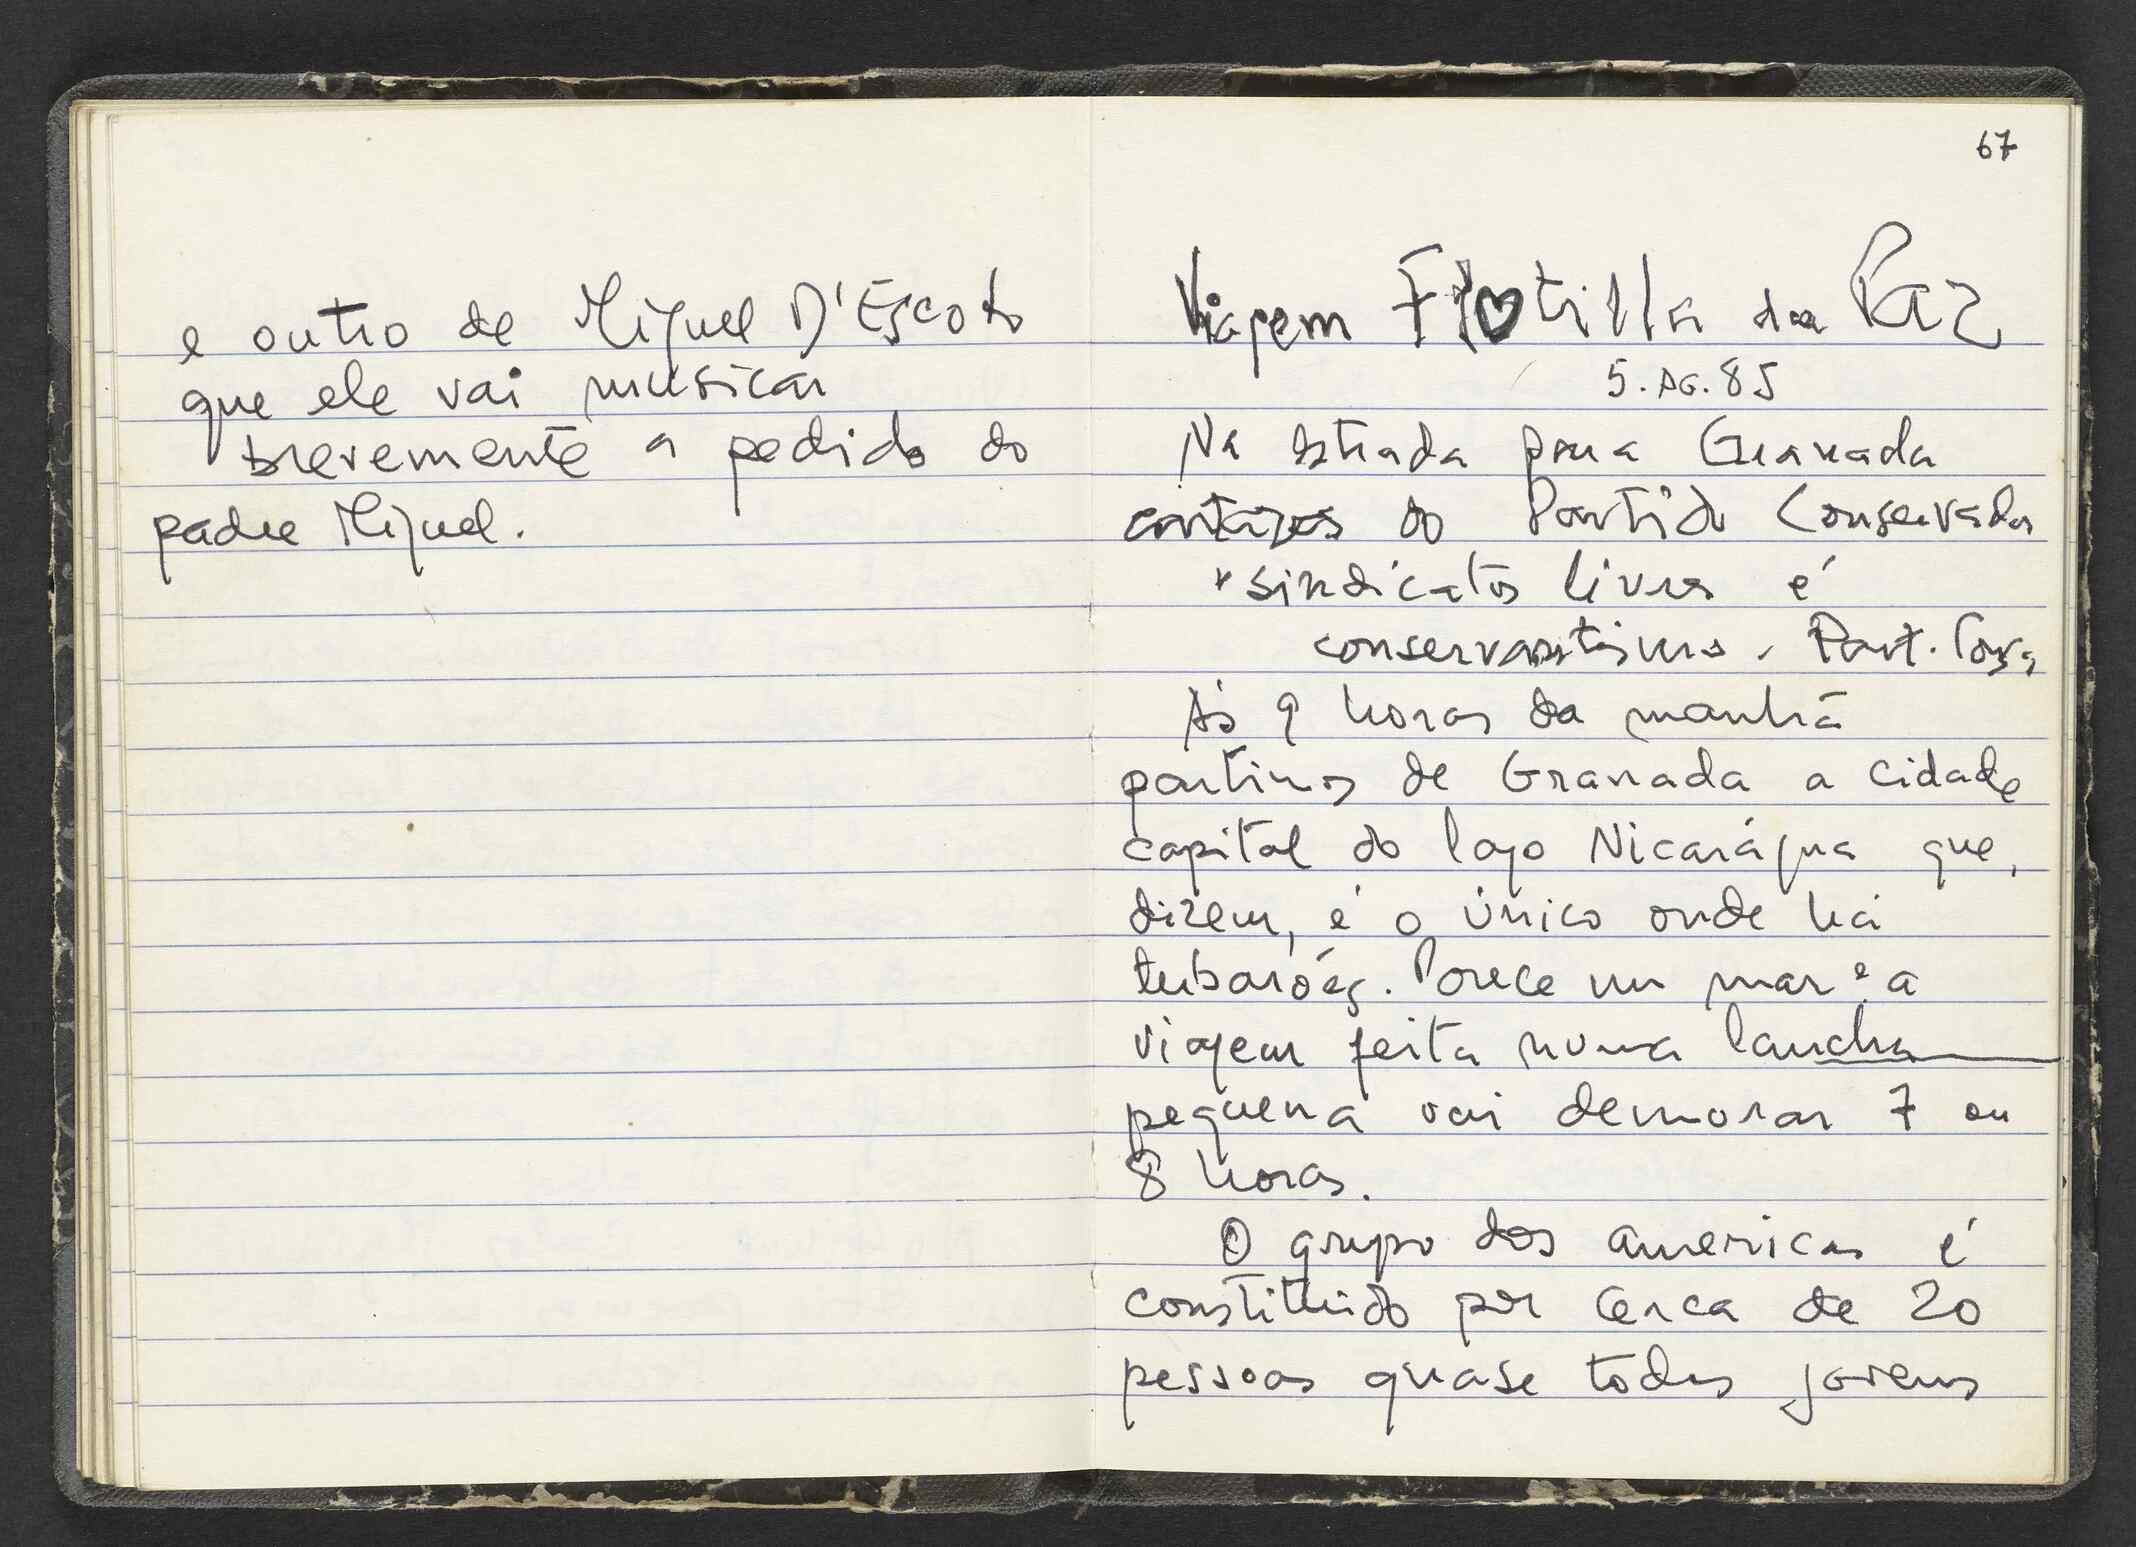 e outro de Miguel D'Escoto
que ele vai musicar
brevemente a pedido do
padre Miguel.
67
Viagem Flotilla da Paz
5. AG. 85
Na estrada para Granada
cartazes do Partido Conservador
"sindicatos livres é
Part. Cons.
Às 9 horas da manhã
partimos de Granada a cidade
capital do lago Nicarágua que,
dizem, é o único onde há
tubarões. Parece um mar e a
viagem feita numa lancha
pequena vai demorar 7 ou
8 horas.
O grupo dos americas é
constituido por cerca de 20
pessoas quase todos jovens